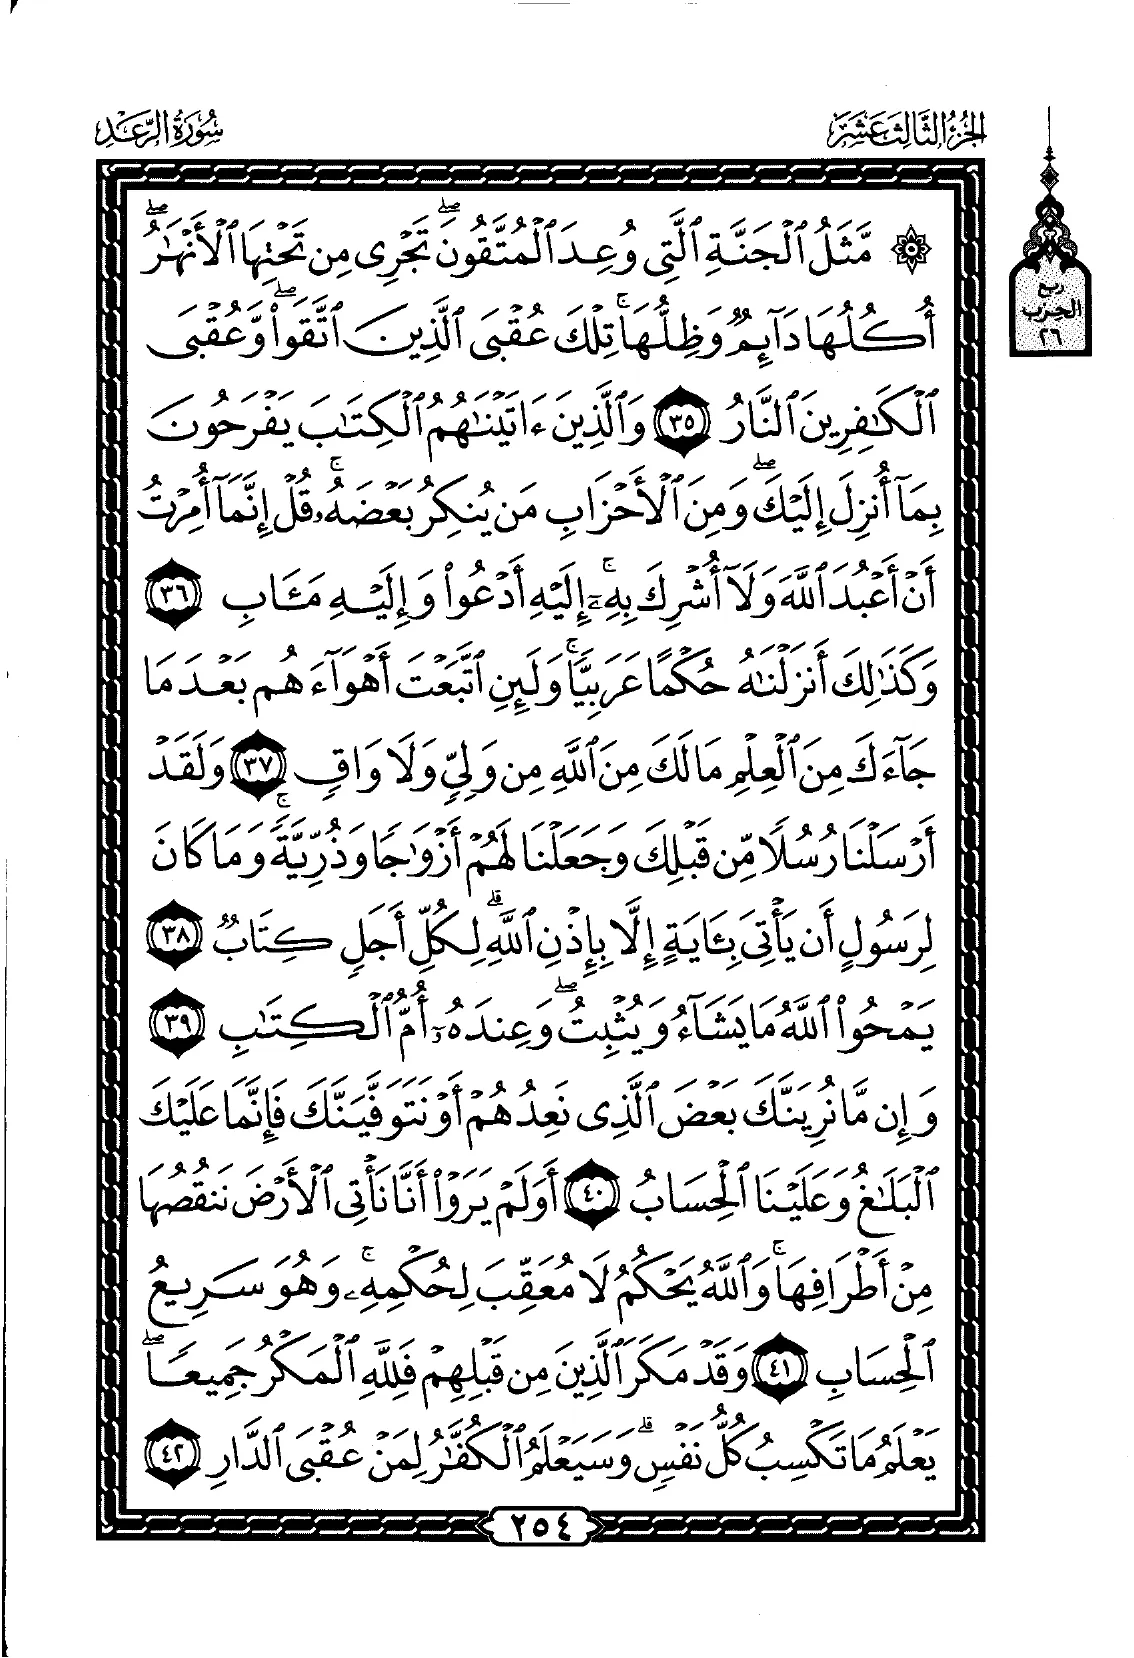 الجزء الثالث عشر
سورة الرعد
ربع
الحزب
٢٦
۞ مَّثَلُ ٱلْجَنَّةِ ٱلَّتِى وُعِدَ ٱلْمُتَّقُونَ ۖ تَجْرِى مِن تَحْتِهَا ٱلْأَنْهَٰرُ ۖ
أُكُلُهَا دَآئِمٌ وَظِلُّهَا ۚ تِلْكَ عُقْبَى ٱلَّذِينَ ٱتَّقَوا۟ ۖ وَّعُقْبَى
ٱلْكَٰفِرِينَ ٱلنَّارُ ٣٥ وَٱلَّذِينَ ءَاتَيْنَٰهُمُ ٱلْكِتَٰبَ يَفْرَحُونَ
بِمَآ أُنزِلَ إِلَيْكَ ۖ وَمِنَ ٱلْأَحْزَابِ مَن يُنكِرُ بَعْضَهُۥ ۚ قُلْ إِنَّمَآ أُمِرْتُ
أَنْ أَعْبُدَ ٱللَّهَ وَلَآ أُشْرِكَ بِهِۦٓ ۚ إِلَيْهِ أَدْعُوا۟ وَإِلَيْهِ مَـَٔابِ ٣٦
وَكَذَٰلِكَ أَنزَلْنَٰهُ حُكْمًا عَرَبِيًّا ۚ وَلَئِنِ ٱتَّبَعْتَ أَهْوَآءَهُم بَعْدَ مَا
جَآءَكَ مِنَ ٱلْعِلْمِ مَا لَكَ مِنَ ٱللَّهِ مِن وَلِىٍّ وَلَا وَاقٍ ٣٧ وَلَقَدْ
أَرْسَلْنَا رُسُلًا مِّن قَبْلِكَ وَجَعَلْنَا لَهُمْ أَزْوَٰجًا وَذُرِّيَّةً ۚ وَمَا كَانَ
لِرَسُولٍ أَن يَأْتِىَ بِـَٔايَةٍ إِلَّا بِإِذْنِ ٱللَّهِ ۗ لِكُلِّ أَجَلٍ كِتَابٌ ٣٨
يَمْحُوا۟ ٱللَّهُ مَا يَشَآءُ وَيُثْبِتُ ۖ وَعِندَهُۥٓ أُمُّ ٱلْكِتَٰبِ ٣٩
وَإِن مَّا نُرِيَنَّكَ بَعْضَ ٱلَّذِى نَعِدُهُمْ أَوْ نَتَوَفَّيَنَّكَ فَإِنَّمَا عَلَيْكَ
ٱلْبَلَٰغُ وَعَلَيْنَا ٱلْحِسَابُ ٤٠ أَوَلَمْ يَرَوْا۟ أَنَّا نَأْتِى ٱلْأَرْضَ نَنقُصُهَا
مِنْ أَطْرَافِهَا ۚ وَٱللَّهُ يَحْكُمُ لَا مُعَقِّبَ لِحُكْمِهِۦ ۚ وَهُوَ سَرِيعُ
ٱلْحِسَابِ ٤١ وَقَدْ مَكَرَ ٱلَّذِينَ مِن قَبْلِهِمْ فَلِلَّهِ ٱلْمَكْرُ جَمِيعًا ۖ
يَعْلَمُ مَا تَكْسِبُ كُلُّ نَفْسٍ ۗ وَسَيَعْلَمُ ٱلْكُفَّٰرُ لِمَنْ عُقْبَى ٱلدَّارِ ٤٢
٢٥٤